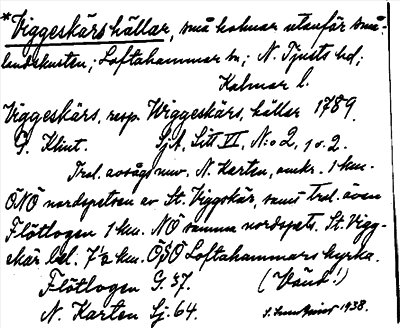 *Viggeskärs hällar, små holmar utanför små-
landskusten; Loftahammar sn; N. Tjusts hd;
Kalmar l.
Viggeskärs, resp. Wiggeskärs, hällar 1789.
G. Klint. SjA, Litt VI, N:o 2, 1 o. 2.
Trol. avsågs nuv. N. Karten, omkr. 1 km.
ÖNÖ nordspetsen av St. Viggskär, samt trol. även
Flötlogen 1 km. NÖ samma nordspets. St. Vigg-
skär bel. 7½ km. ÖSÖ Loftahammars kyrka.
Flötlogen G. 37. (Vänd!)
N. Karten Sj. 64. 1938.